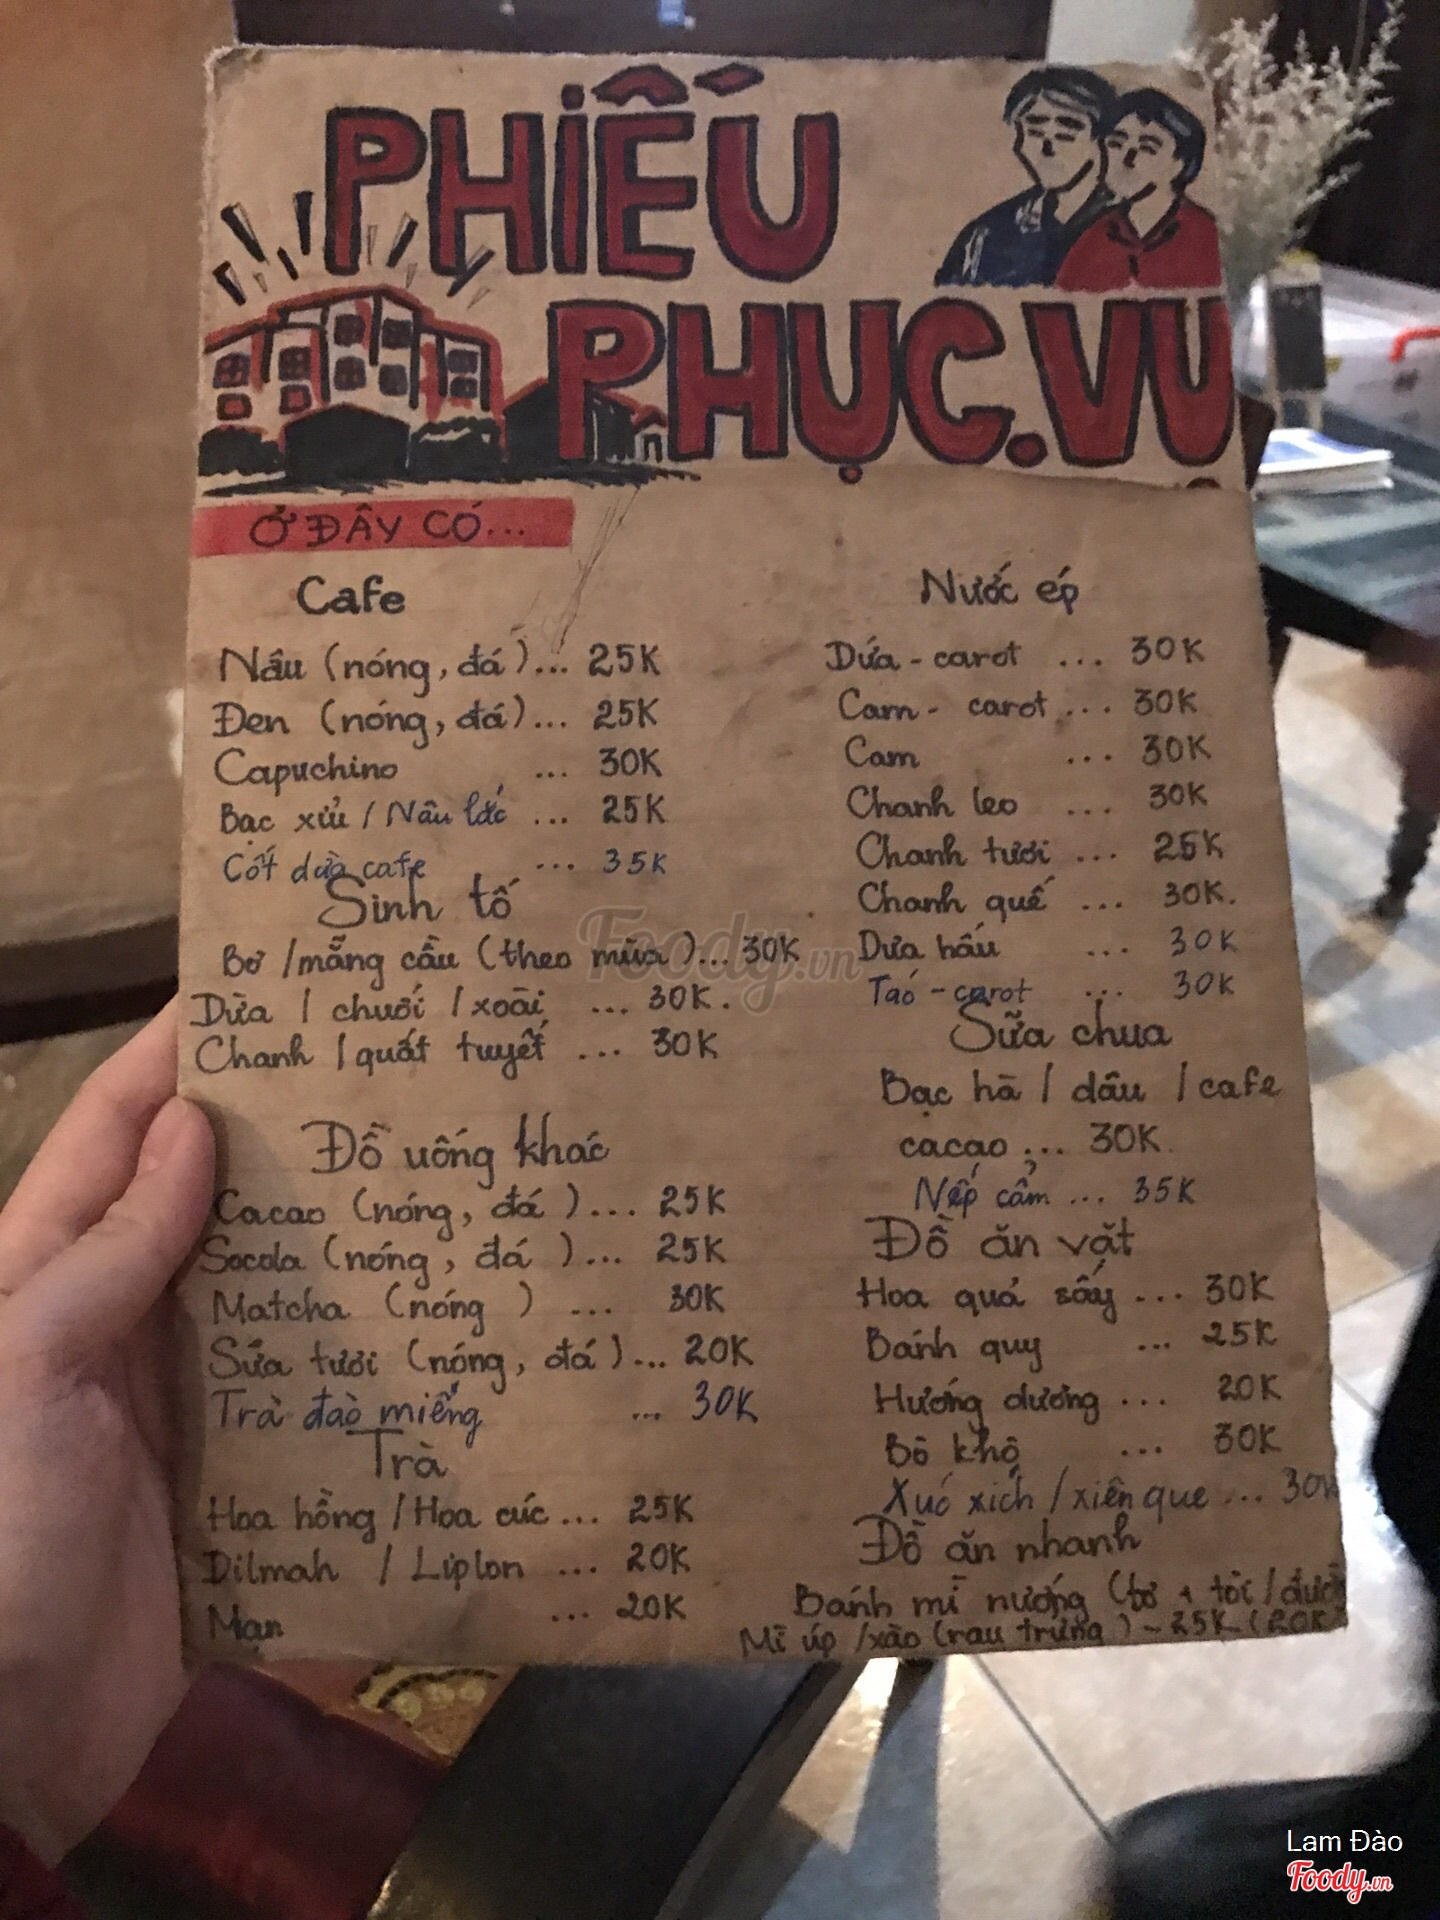 PHIẾU
PHỤC.VỤ
Ở ĐÂY CÓ...
Cafe
Nâu (nóng, đá)... 25K
Đen (nóng, đá)... 25K
Capuchino ... 30K
Bạc xỉu / Nâu lắc ... 25K
Cốt dừa cafe ... 35K
Sinh tố
Bơ / mẵng cầu (theo mùa)... 30K
Dừa / chuối / xoài ... 30K.
Chanh / quất tuyết ... 30K
Đồ uống khác
Cacao (nóng, đá)... 25K
Socola (nóng, đá)... 25K
Matcha (nóng) ... 30K
Sữa tươi (nóng, đá)... 20K
Trà đào miếng ... 30K
Trà
Hoa hồng / Hoa cúc ... 25K
Dilmah / Lipton ... 20K
Mạn ... 20K
Nước ép
Dứa - carot ... 30K
Cam - carot ... 30K
Cam ... 30K
Chanh leo ... 30K
Chanh tươi ... 25K
Chanh quế ... 30K.
Dưa hấu ... 30K
Táo - carot ... 30K
Sữa chua
Bạc hà / dâu / cafe
cacao ... 30K.
Nếp cẩm ... 35K
Đồ ăn vặt
Hoa quả sấy ... 30K
Bánh quy ... 25K
Hướng dương ... 20K
Bò khô ... 30K
Xúc xích / xiên que ... 30K
Đồ ăn nhanh
Bánh mì nướng (bơ + tỏi /
Mì úp / xào (rau trứng) - 25K (20K
Foody.vn
Lam Đào
Foody.vn